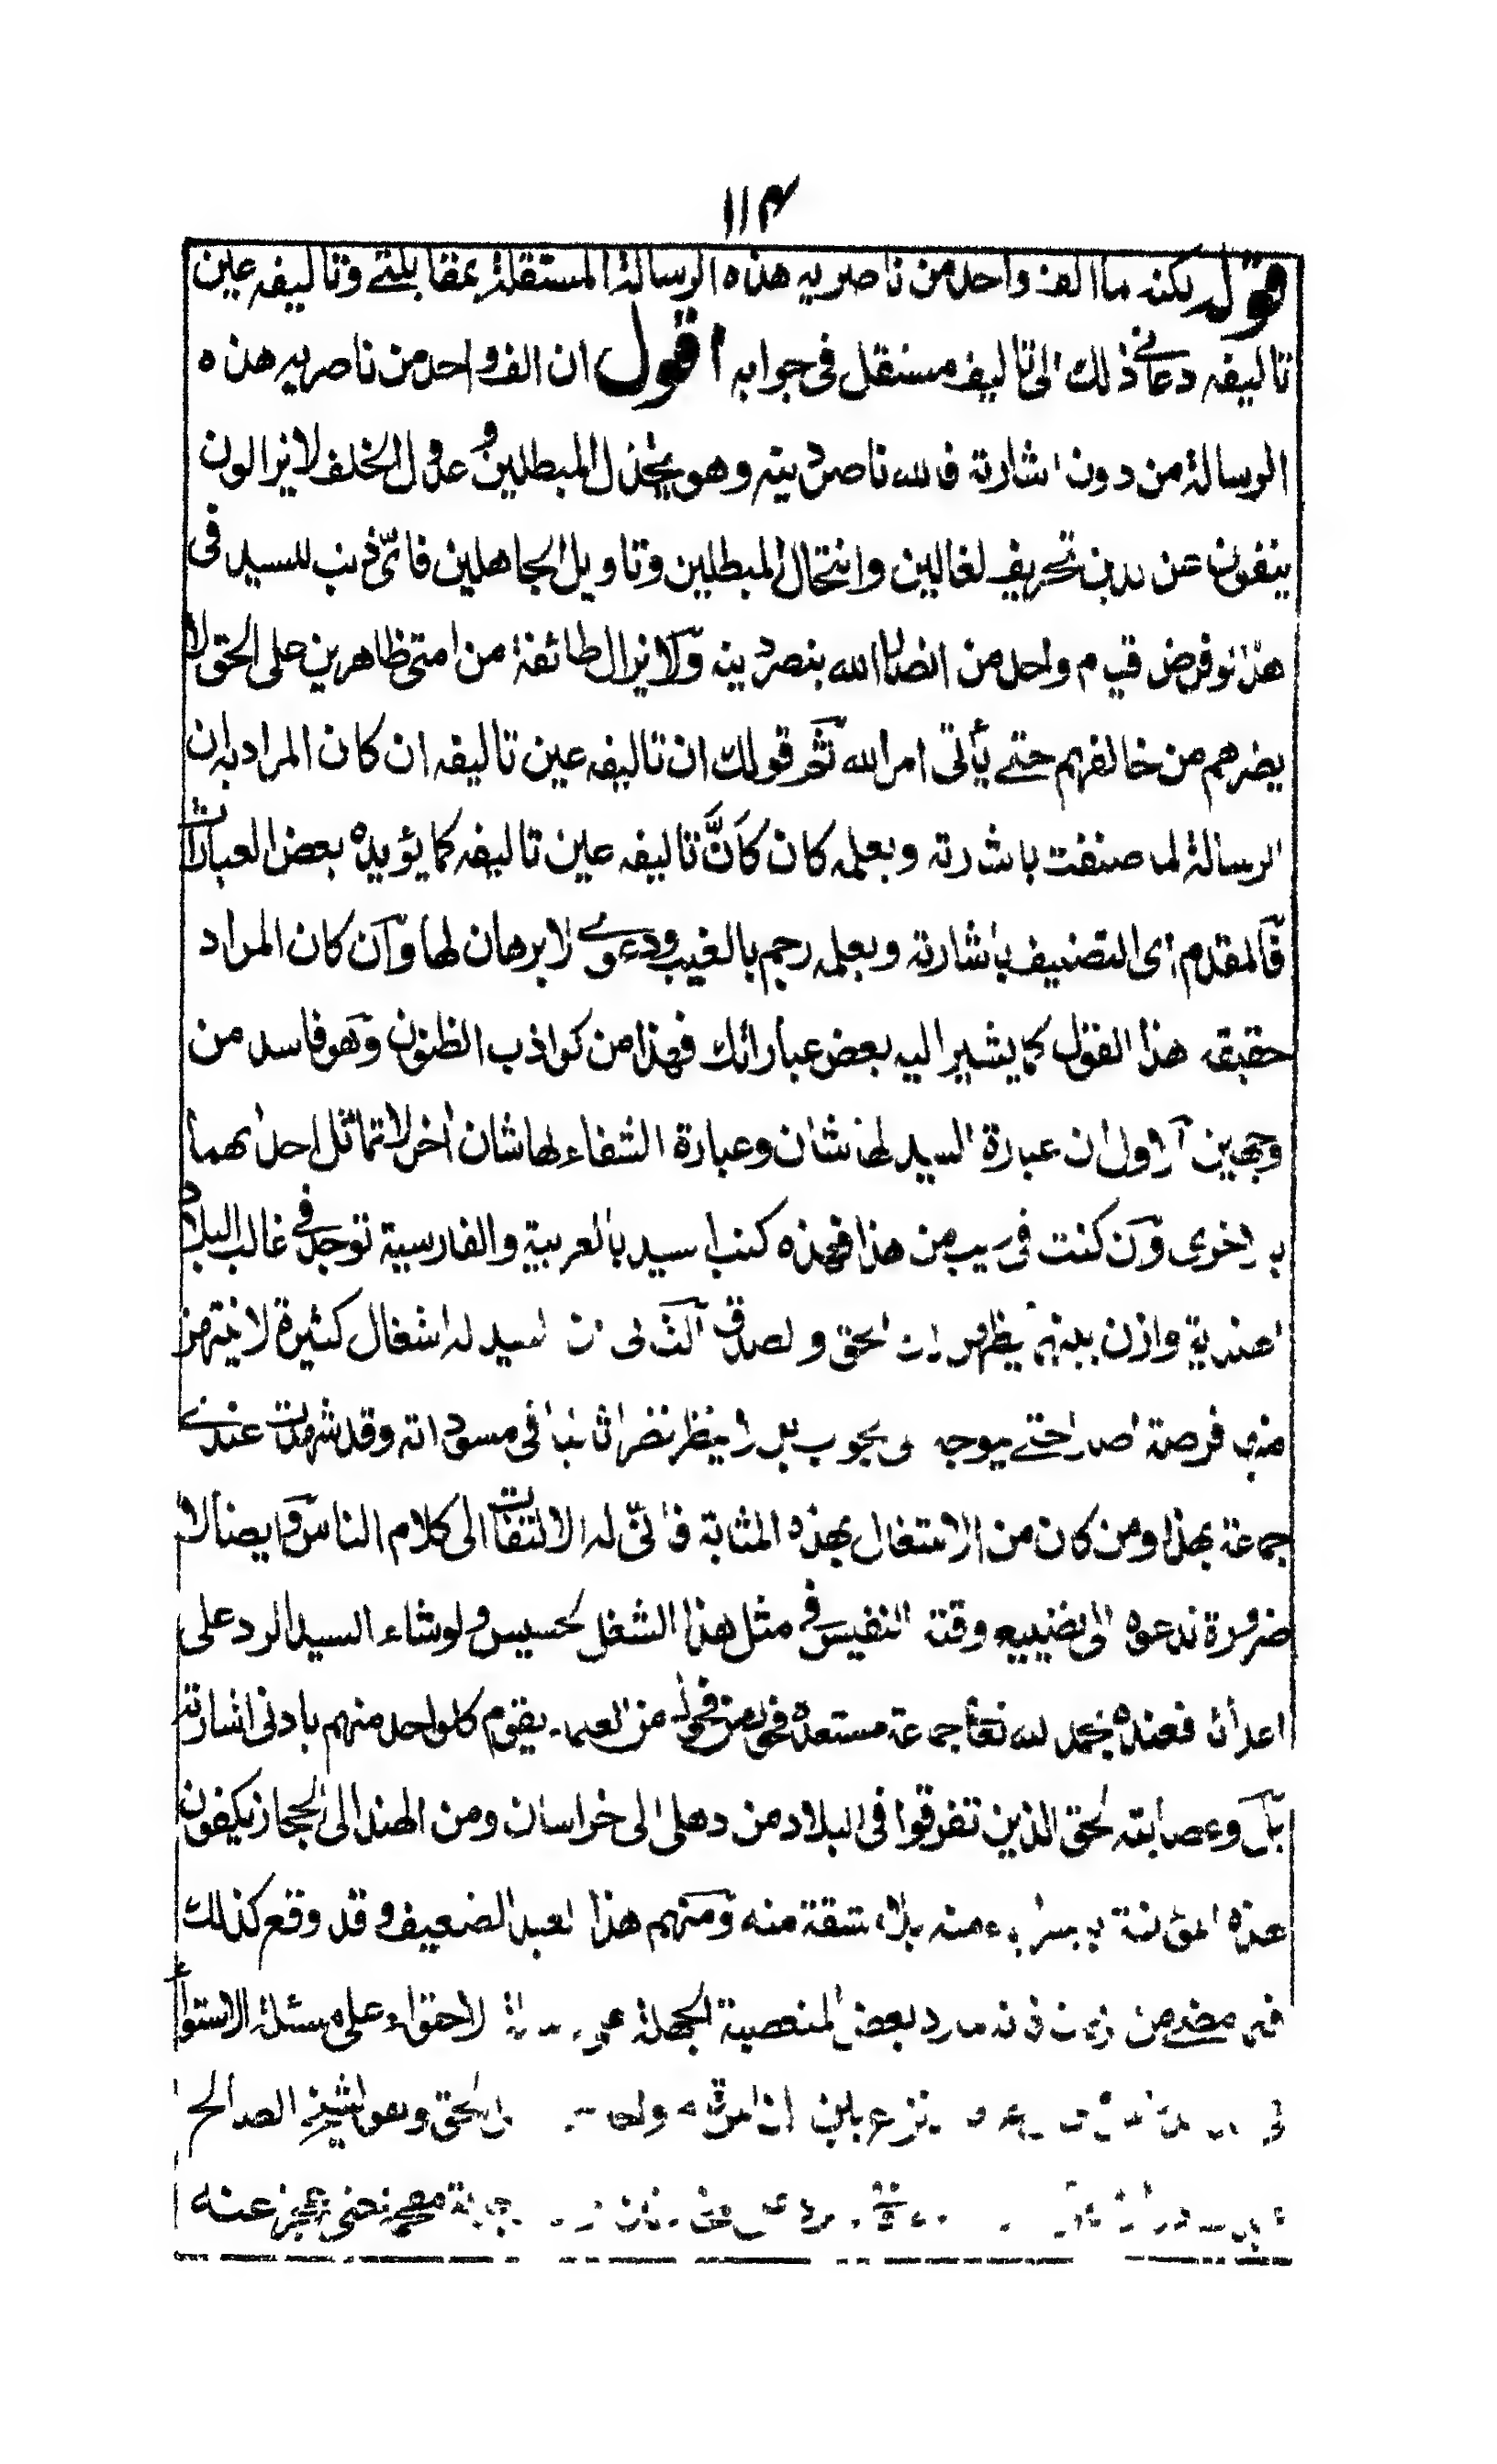 ١١٤
قوله لكنه ما الف واحد من ناصريه هذه الرسالة المستقلة بمقابلتي وتاليفه عين
تاليفه دعاني ذلك الى تاليف مستقل في جوابه اقول ان الف واحد من ناصريه هذه
الرسالة من دون اشارته فالله ناصر دينه وهو يخذل المبطلين وعدول الخلف لا يزالون
ينفون عن الدين تحريف الغالين وانتحال المبطلين وتاويل الجاهلين فاىّ ذنب للسيد فى
هذا لو فرض قيام واحد من انصار الله بنصر دينه ولا يزال طائفة من امتى ظاهرين على الحق لا
يضرهم من خالفهم حتے يأتى امر الله ثم قولك ان تاليفه عين تاليفه ان كان المراد به ان
الرسالة لما صنفت باشارته وبعلمه كان كَانَّ تاليفه عين تاليفه كما يؤيده بعض العبارات
فالمقدم اى التصنيف باشارته وبعلمه رجم بالغيب ودعوے لا برهان لها وان كان المراد
حقيقة هذا القول كما يشير اليه بعض عباراتك فهذا من كواذب الظنون وهو فاسد من
وجهين الاول ان عبارة السيد لها شان وعبارة الشفاء لها شان اخر لا تماثل احدٰهما
بالاخرى وان كنت فى ريب من هذا فهذه كتب السيد بالعربية والفارسية توجد فى غالب البلاد
الهندية وازن بينهما يظهر لك الحق والصدق الثانى ان السيد له اشغال كثيرة لا ينتهز
منها فرصة اصلا حتے يتوجه الى الجواب بل لا ينظر نظرا ثانيا فى مسوداته وقد شهدت عندے
جماعة بهذا ومن كان من الاشتغال بهذه المثابة فانّى له الالتفات الى كلام الناس وايضا لا
ضرورة تدعوه الى تضييع وقته النفيس فى مثل هذا الشغل الخسيس ولو شاء السيد الرد على
اعدائه فعنده بحمد الله تعالى جماعة مستعدة من فحول من العلماء يقوم كل واحد منهم بادنى اشارته
بل وعصابته الحق الذين تفرقوا فى البلاد من دهلى الى خراسان ومن الهند الى الحجاز يكفون
هذه المؤنة منه بلا مشقة منه ومنهم هذا العبد الضعيف وقد وقع كذلك
فيما مضے من الزمان رد بعض المتعصبة الجهلة على رسالة الاحتواء على مسئلة الاستواء
الحق وهو الشيخ الصالح
عجز عنه